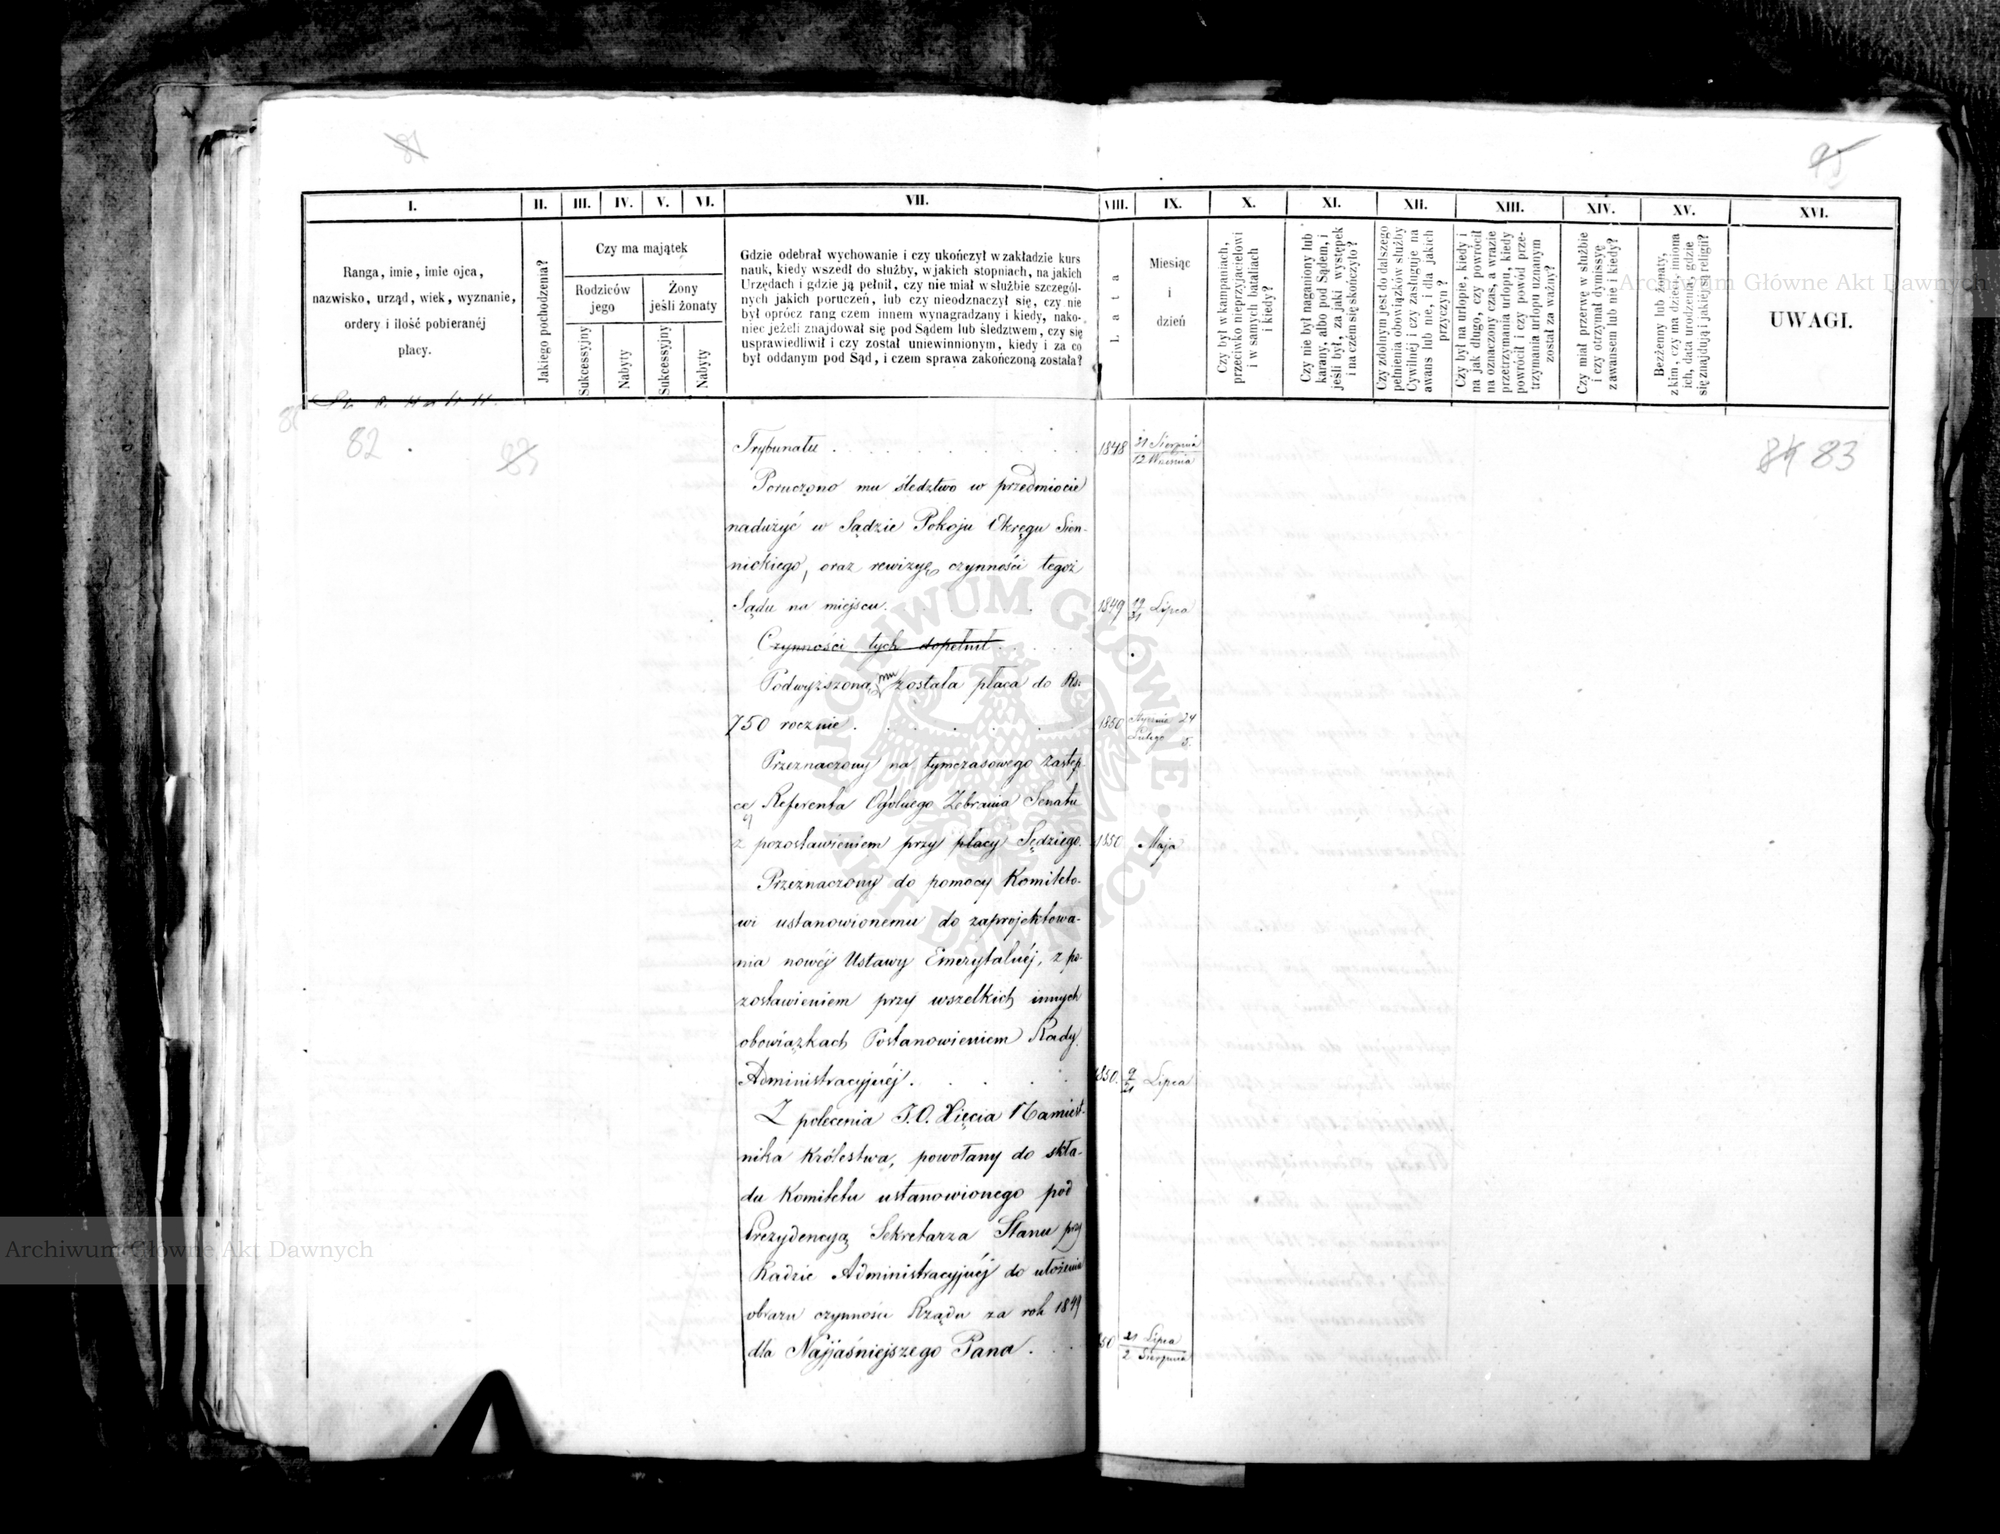 81
95
I.
II.
III.
IV.
V.
VI.
VII.
VIII.
IX.
X.
XI.
XII.
XIII.
XIV.
XV.
XVI.
Ranga, imie, imie ojca,
nazwisko, urząd, wiek, wyznanie,
ordery i ilość pobieranéj
płacy.
Jakiego pochodzenia?
Czy ma majątek
Rodziców
jego
Żony
jeśli żonaty
Sukcessyjny
Nabyty
Sukcessyjny
Nabyty
Gdzie odebrał wychowanie i czy ukończył w zakładzie kurs
nauk, kiedy wszedł do służby, w jakich stopniach, na jakich
Urzędach i gdzie ją pełnił, czy nie miał w służbie szczegól-
nych jakich poruczeń, lub czy nieodznaczył się, czy nie
był oprócz rang czem innem wynagradzany i kiedy, nako-
niec jeżeli znajdował się pod Sądem lub śledztwem, czy się
usprawiedliwił i czy został uniewinnionym, kiedy i za co
był oddanym pod Sąd, i czem sprawa zakończoną została?
Lata
Miesiąc
i
dzień
Czy był w kampaniach,
przeciwko nieprzyjacielowi
i w samych bataliach
i kiedy?
Czy nie był naganiony lub
karany, albo pod Sądem, i
jeśli był, za jaki występek
i na czem się skończyło?
Czy zdolnym jest do dalszego
pełnienia obowiązków służby
Cywilnéj i czy zasługuje na
awans lub nie, i dla jakich
przyczyn?
Czy był na urlopie, kiedy i
na jak długo, czy powrócił
na oznaczony czas, a w razie
przetrzymania urlopu, kiedy
powrócił i czy powód prze-
trzymania urlopu uznanym
został za ważny?
Czy miał przerwę w służbie
i czy otrzymał dymissyę
z awansem lub nie i kiedy?
Bezżenny lub żonaty,
z kim, czy ma dzieci, imiona
ich, data urodzenia, gdzie
się znajdują i jakiéj są religii?
UWAGI.
82
83
84 83
Trybunału . . . . 1848 31 Sierpnia
12 Września
Poruczono mu śledztwo w przedmiocie
nadużyć w Sądzie Pokoju Okręgu Sien-
nickiego, oraz rewizyę czynności tegoż
Sądu na miejscu. 1849 Lipca
Czynności tych dopełnił . . . .
Podwyższoną mu została płaca do Rs.
750 rocznie . . . . 1850 Stycznia 24
Lutego 5.
Przeznaczony na tymczasowego Zastęp-
cę Referenta Ogólnego Zebrania Senatu
z pozostawieniem przy płacy Sędziego. 1850. Maja
Przeznaczony do pomocy Komiteto-
wi ustanowionemu do zaprojektowa-
nia nowéj Ustawy Emerytalnéj, z po-
zostawieniem przy wszelkich innych
obowiązkach Postanowieniem Rady
Administracyjnéj . . . . 1850. 9/21 Lipca
Z polecenia J.O. Xięcia Namiest-
nika Królestwa, powołany do skła-
du Komitetu ustanowionego pod
Prezydencyą Sekretarza Stanu przy
Radzie Administracyjnéj do ułożenia
obrazu czynności Rządu za rok 1849
dla Najjaśniejszego Pana . . . 50 21 Lipca
2 Sierpnia
Archiwum Główne Akt Dawnych
Archiwum Główne Akt Dawnych
ARCHIWUM GŁÓWNE AKT DAWNYCH